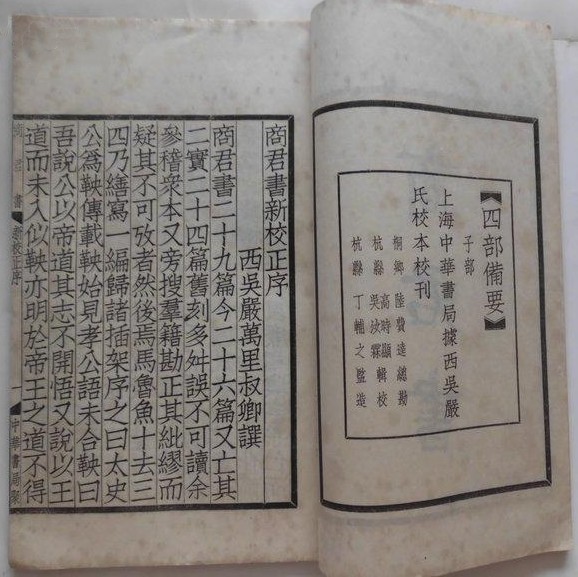 《四部備要》
子部
上海中華書局據西吳嚴
氏校本校刊
桐鄉 陸費逵總勘
杭縣 高時顯輯校
吳汝霖
杭縣 丁輔之監造
商君書新校正序
西吳嚴萬里叔卿譔
商君書二十九篇今二十六篇又亡其
二實二十四篇舊刻多舛誤不可讀余
參稽衆本又旁搜羣籍勘正其紕繆而
疑其不可攷者然後焉馬魯魚十去三
四乃繕寫一編歸諸插架序之曰太史
公爲鞅傳載鞅始見孝公語未合鞅曰
吾說公以帝道其志不開悟又說以王
道而未入似鞅亦明於帝王之道不得
商君書 新校正序 一 中華書局聚